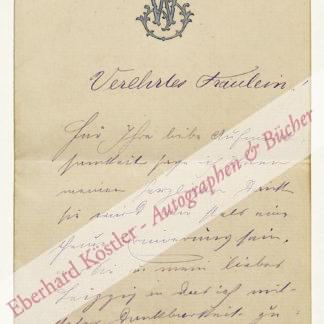 Verehrtes Fräulein!
Für Ihre liebe Aufmerk
samkeit sage ich Ihnen
meinen herzlichen Dank
sie wird mir stets eine
Erinnerung sein,
in mein liebes
Leipzig in das ich mit
Dankbarkeit zu-
Eberhard Köstler - Autographen & Bücher